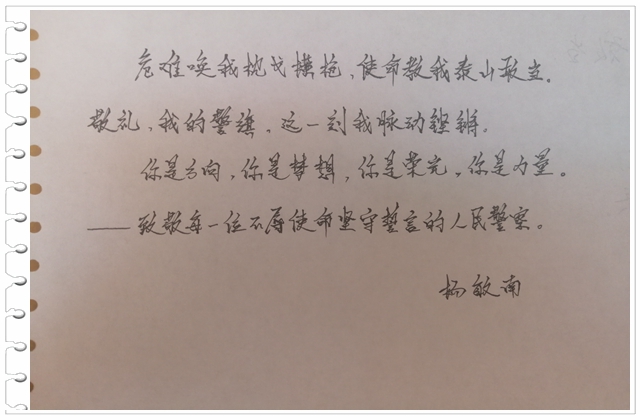 危难唤我枕戈横枪,使命教我泰山敢当。
敬礼,我的警旗,这一刻我脉动铿锵。
你是方向,你是梦想,你是荣光,你是力量。
——致敬每一位不辱使命坚守誓言的人民警察。
杨敏南